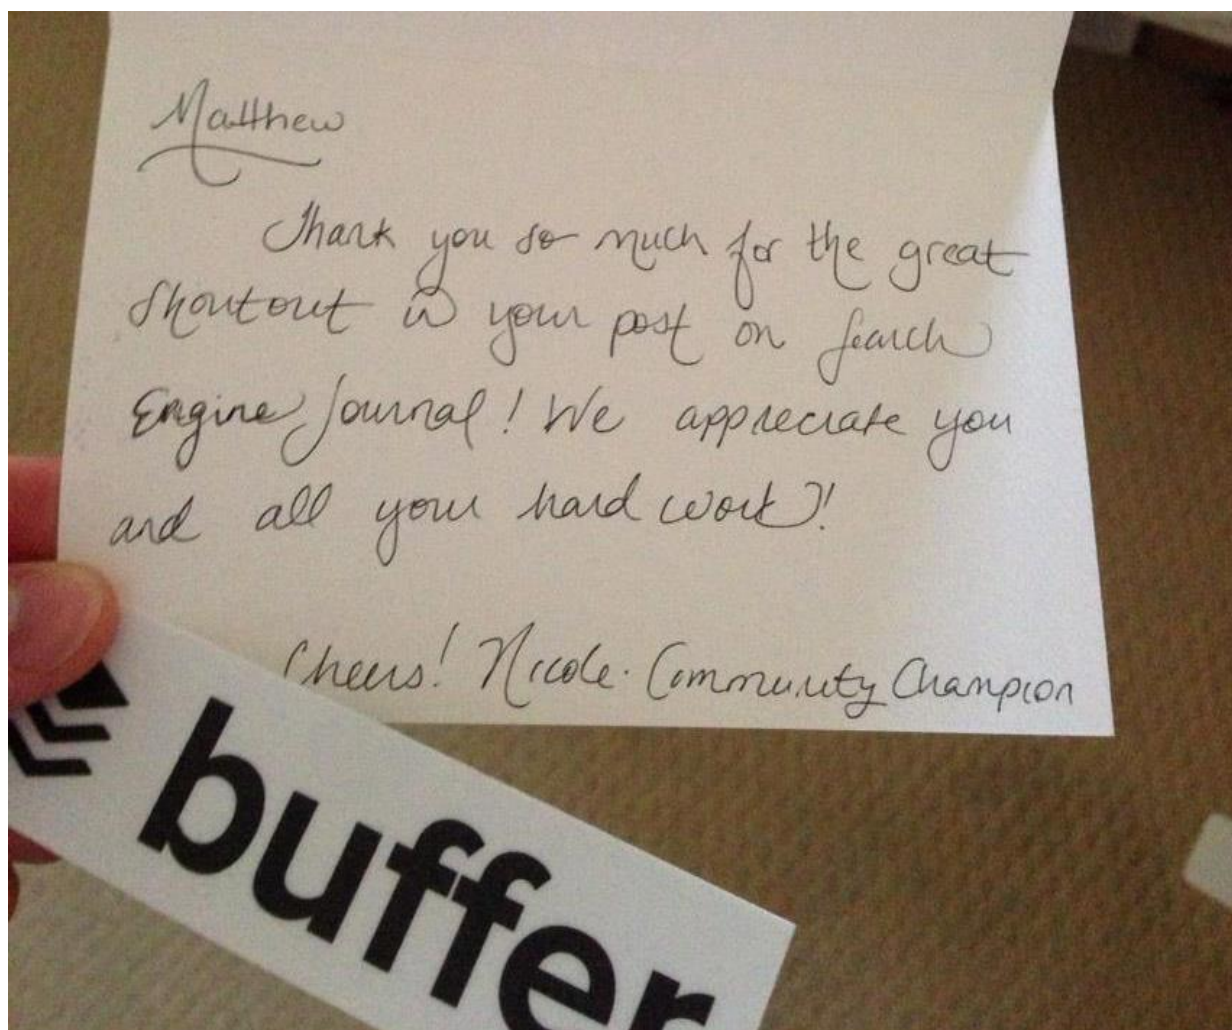 Matthew
Thank you so much for the great
shoutout in your post on Search
Engine Journal! We appreciate you
and all your hard work!
Cheers! Nicole. Community Champion
buffer